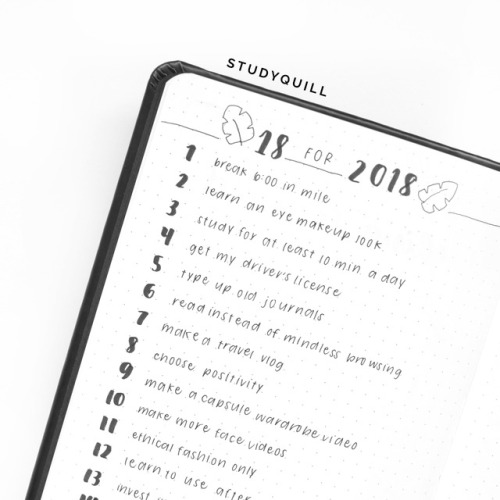 STUDYQUILL
18 FOR 2018
1 break 6:00 in mile
2 learn an eye makeup look
3 study for at least 10 min a day
4 get my driver's license
5 type up old journals
6 read instead of mindless browsing
7 make a travel vlog
8 choose positivity
9 make a capsule wardrobe video
10 make more face videos
11 ethical fashion only
12 learn to use after
13 invest